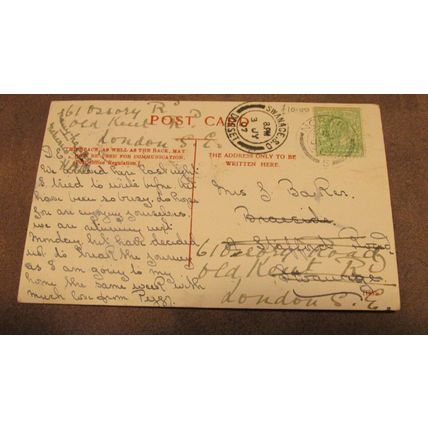 61 Ossory Rd
Old Kent Rd
London S.E.
POST CARD
THIS SPACE, AS WELL AS THE BACK, MAY
NOW BE USED FOR COMMUNICATION.
(Post Office Regulation.)
THE ADDRESS ONLY TO BE
WRITTEN HERE.
SWANAGE S.O.
8 PM
3 JY
07
DORSET
Mrs J Barker
Braeside
Stafford Road
Swanage
61 Ossory Road
Old Kent Rd
London S.E.
We arrived here last night
I tried to write before but
have been so busy, do hope
you are enjoying yourselves
we are returning next
Monday but have decided
not to break the journey
as I am going to my
home the same week with
much love from